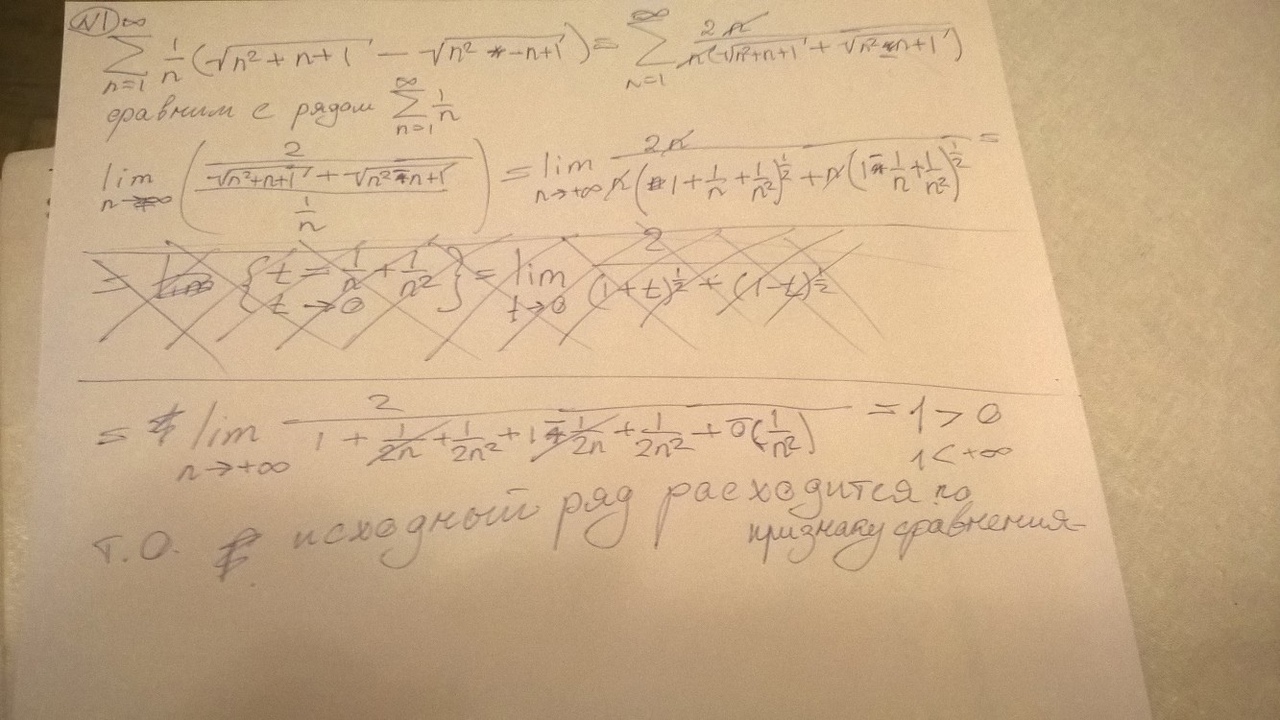 №1
∑_{n=1}^{∞} 1/n (√(n²+n+1) − √(n²−n+1)) = ∑_{n=1}^{∞} 2n/(n(√(n²+n+1) + √(n²−n+1)))
сравним с рядом ∑_{n=1}^{∞} 1/n
lim_{n→∞} ((2/(√(n²+n+1) + √(n²−n+1)))/(1/n)) = lim_{n→+∞} 2n/(n(1+1/n+1/n²)^{1/2} + n(1−1/n+1/n²)^{1/2}) =
= lim {t = 1/n + 1/n², t → 0} = lim_{t→0} 2/((1+t)^{1/2} + (1−t)^{1/2})
= lim_{n→+∞} 2/(1 + 1/2n + 1/2n² + 1 − 1/2n + 1/2n² + ō(1/n²)) = 1 > 0
1 < +∞
т.о. исходный ряд расходится по
признаку сравнения